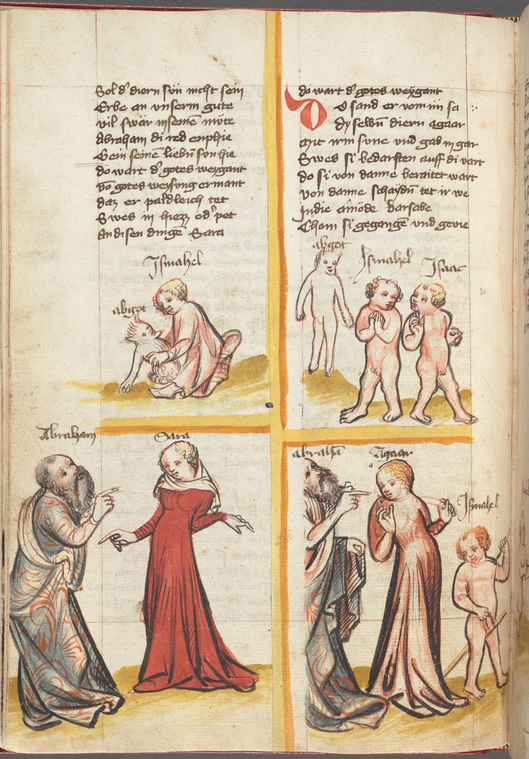 Sol d' diern sun nicht sein
Erbe an unserm gute
vil swär in seinē mūte
Abraham di red enphie
Gein seinē liebū sun hie
do wart d' gotes weygant
vō gotes weysung ermant
daz er paldleich tet
Swes in hiez od' pet
An disen dingē Sara
Ismahel
abgot
Abraham
Sara
do wart d' gotes weygant
Do sand er von im sa
dy selbū diern agaar
mit irm sune vnd gab in gar
Swes si bedarften auff di vart
do si von danne beraitet wart
von danne schaydū tet ir we
In die ainöde barsabe
Chom si gegangē vnd
abgot
Ismahel
Isaac
abrahā
Agaar
Ismahel